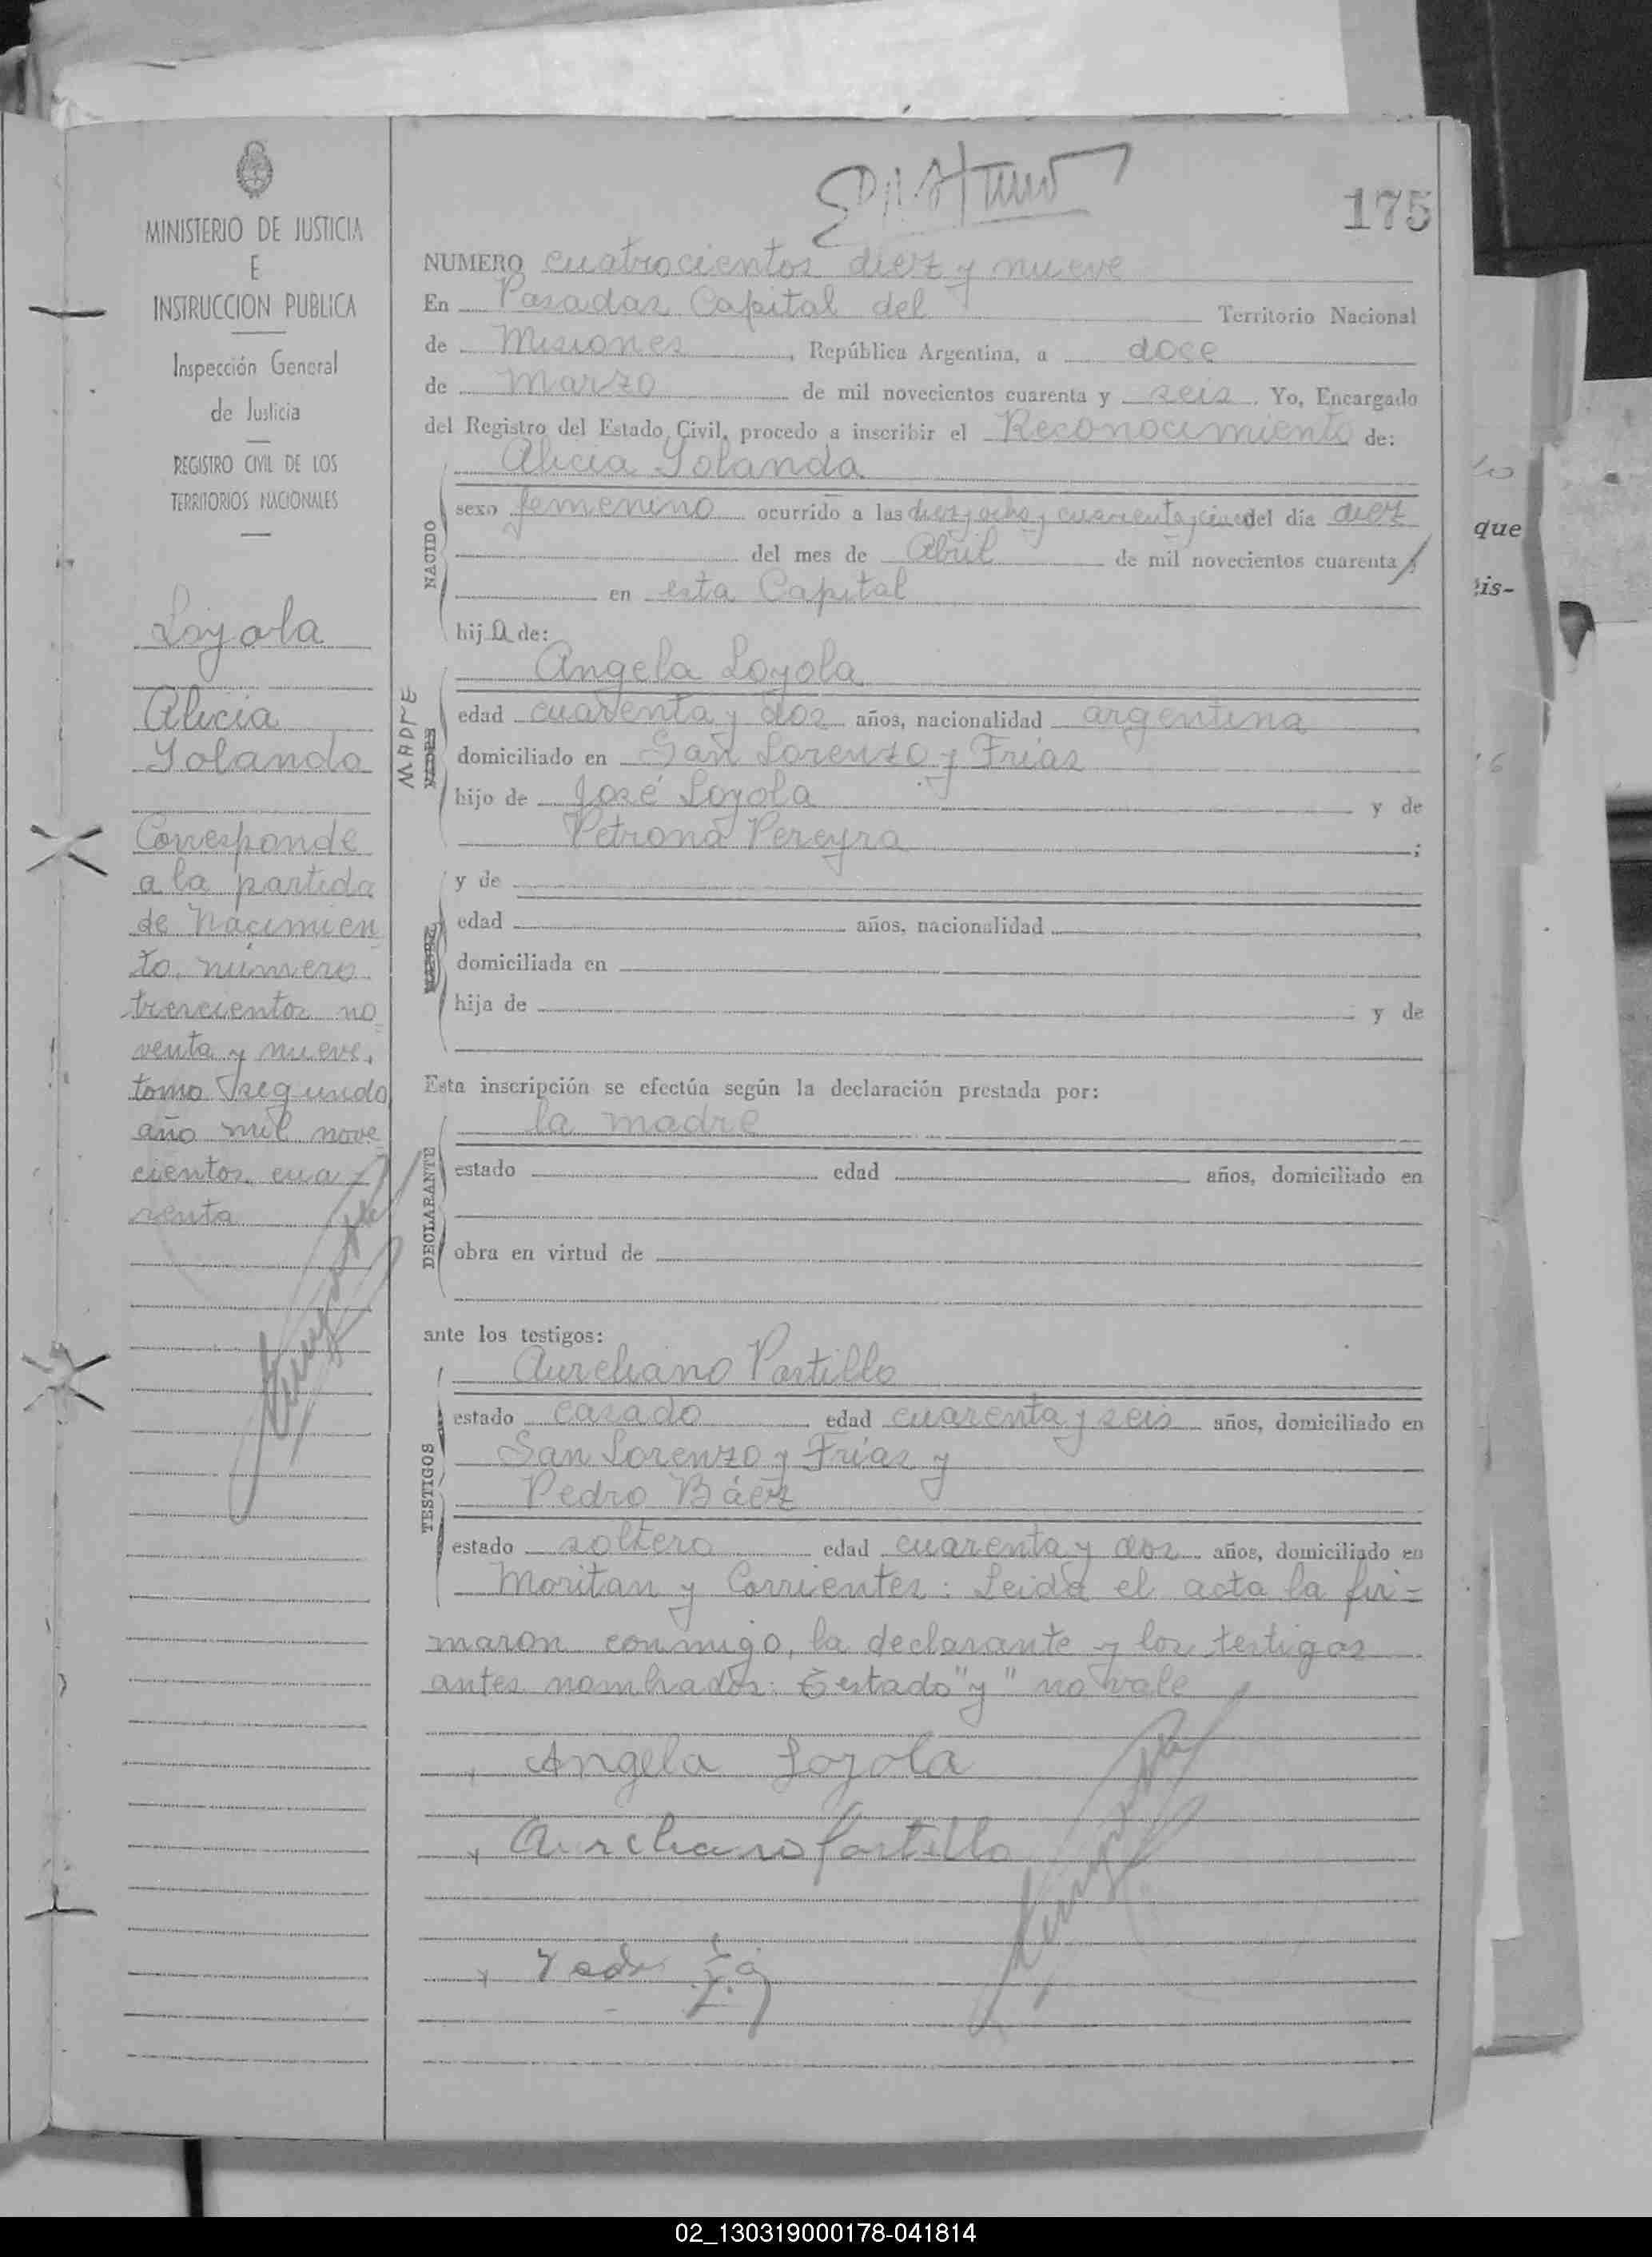 175
MINISTERIO DE JUSTICIA
E
INSTRUCCION PUBLICA
Inspección General
de Justicia
REGISTRO CIVIL DE LOS
TERRITORIOS NACIONALES
Loyola
Alicia
Yolanda
Corresponde
a la partida
de Nacimien
to, número
trescientos no
venta y nueve,
tomo segundo
año mil nove
cientos cua
renta
NUMERO cuatrocientos diez y nueve
En Posadas Capital del Territorio Nacional
de Misiones, República Argentina, a doce
de Marzo de mil novecientos cuarenta y seis. Yo, Encargado
del Registro del Estado Civil, procedo a inscribir el Reconocimiento de:
Alicia Yolanda
NACIDO
sexo femenino ocurrido a las diez y ocho y cuarenta y cinco del dia diez
del mes de Abril de mil novecientos cuarenta y
en esta Capital
hija de:
Angela Loyola
MADRE
edad cuarenta y dos años, nacionalidad argentina
domiciliado en San Lorenzo y Frías
hijo de José Loyola y de
Petrona Pereyra;
y de
edad años, nacionalidad
domiciliada en
hija de y de
Esta inscripción se efectúa según la declaración prestada por:
la madre
DECLARANTE
estado edad años, domiciliado en
obra en virtud de
ante los testigos:
Aureliano Portillo
TESTIGOS
estado casado edad cuarenta y seis años, domiciliado en
San Lorenzo y Frías y
Pedro Báez
estado soltero edad cuarenta y dos años, domiciliado en
Moritan y Corrientes: Leida el acta la fir=
maron conmigo, la declarante y los testigos
antes nombrados: Testado "y" no vale
Angela Loyola
Aureliano Portillo
que
is-
02_130319000178-041814